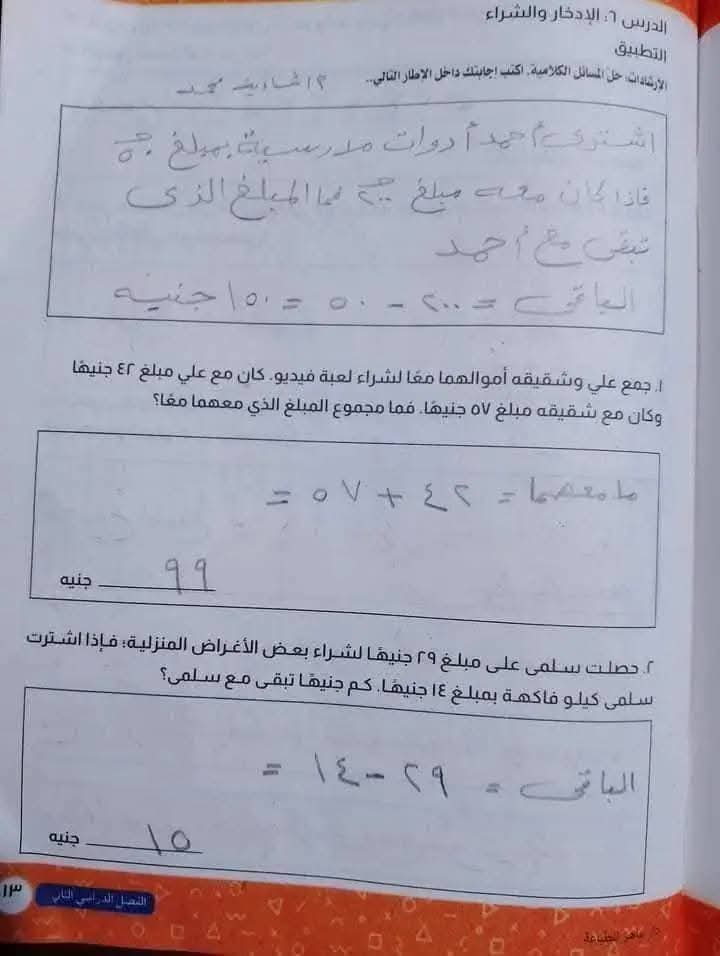 الدرس ٦: الإدخار والشراء
التطبيق
الإرشادات: حل المسائل الكلامية. اكتب إجابتك داخل الإطار التالي..
محمد
اشترى أحمد أدوات مدرسية بمبلغ ٥٠ ج
فإذا كان معه مبلغ ٢٠٠ ج فما المبلغ الذى
تبقى مع أحمد
الباقى = ٢٠٠ - ٥٠ = ١٥٠ جنيه
١. جمع علي وشقيقه أموالهما معًا لشراء لعبة فيديو. كان مع علي مبلغ ٤٢ جنيهًا
وكان مع شقيقه مبلغ ٥٧ جنيهًا. فما مجموع المبلغ الذي معهما معًا؟
ما معهما = ٤٢ + ٥٧ =
٩٩ جنيه
٢. حصلت سلمى على مبلغ ٢٩ جنيهًا لشراء بعض الأغراض المنزلية؛ فإذا اشترت
سلمى كيلو فاكهة بمبلغ ١٤ جنيهًا. كم جنيهًا تبقى مع سلمى؟
الباقى = ٢٩ - ١٤ =
١٥ جنيه
الفصل الدراسي الثاني
١٣